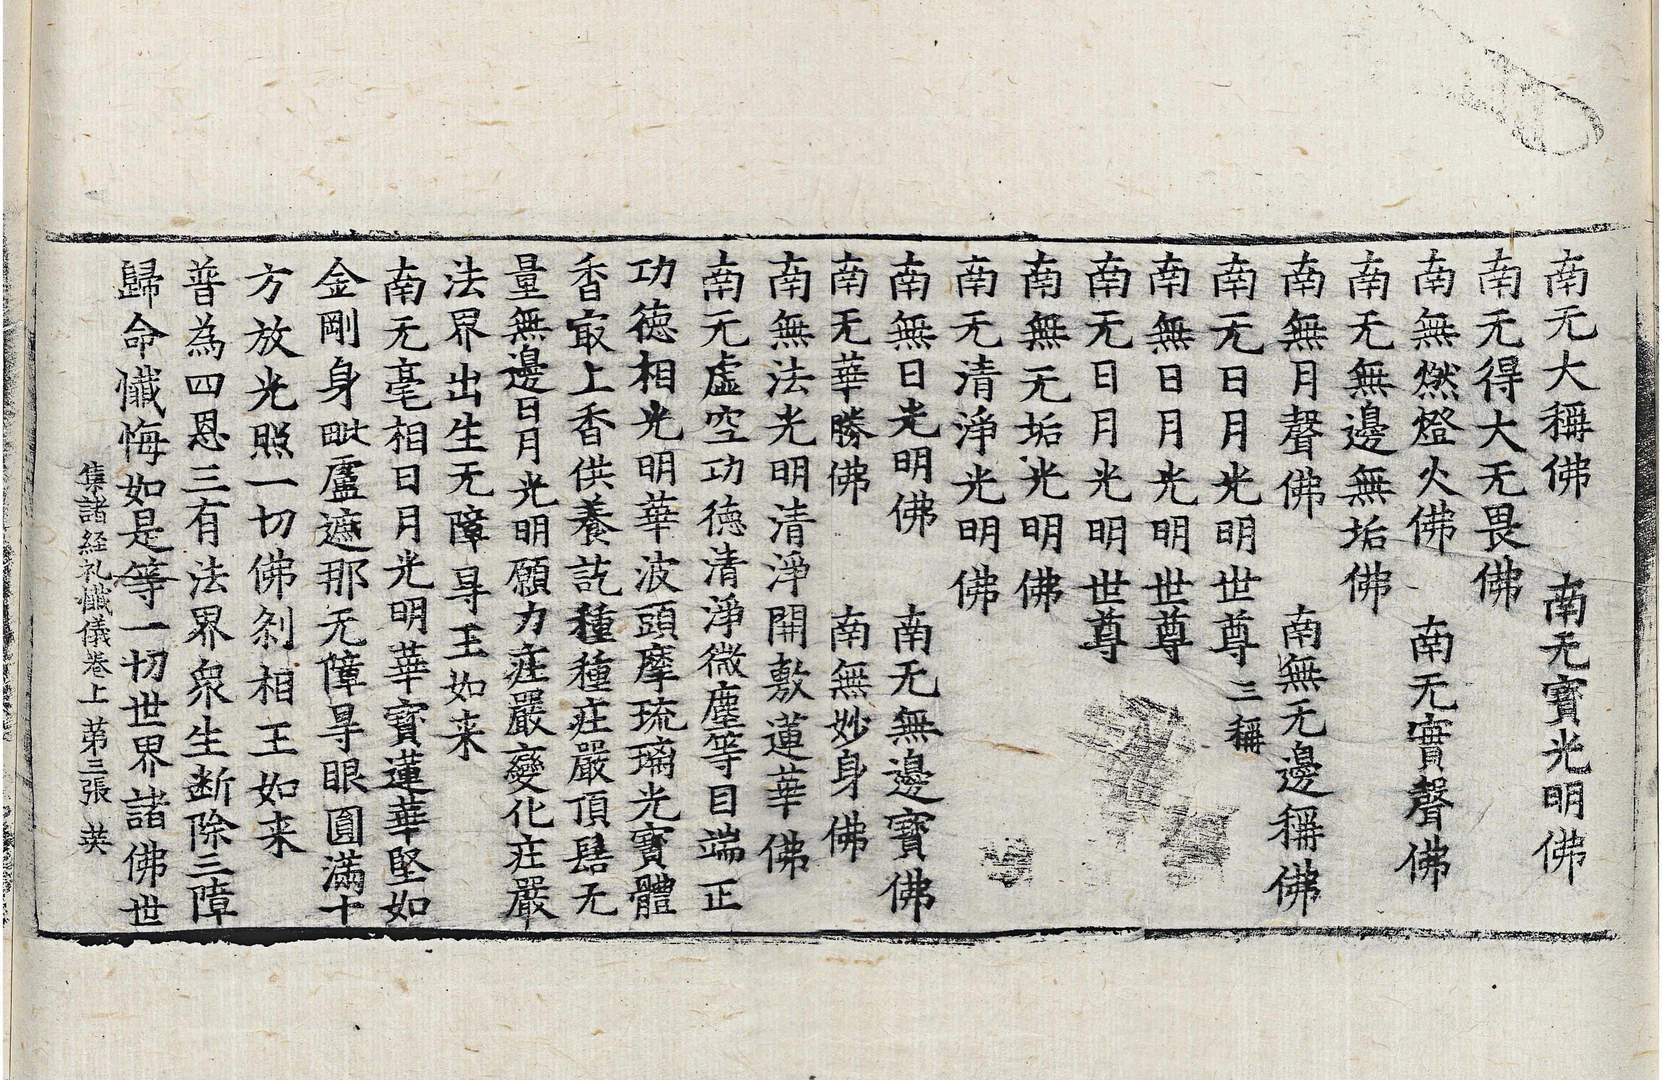 南无大稱佛　南无寶光明佛
南无得大无畏佛
南無燃燈火佛　南无實聲佛
南无無邊無垢佛
南無月聲佛　南無无邊稱佛
南无日月光明世尊三稱
南無日月光明世尊
南无日月光明世尊
南無无垢光明佛
南无清淨光明佛
南無日光明佛　南无無邊寶佛
南无華勝佛　南無妙身佛
南無法光明清淨開敷蓮華佛
南无虛空功德清淨微塵等目端正
功德相光明華波頭摩琉璃光寶體
香㝡上香供養訖種種莊嚴頂髻无
量無邊日月光明願力莊嚴變化莊嚴
法界出生无障㝵王如来
南无毫相日月光明華寶蓮華堅如
金剛身毗盧遮那无障㝵眼圓滿十
方放光照一切佛刹相王如来
普為四恩三有法界衆生断除三障
歸命懺悔如是等一切世界諸佛世
集諸経礼懺儀卷上　第三張　英